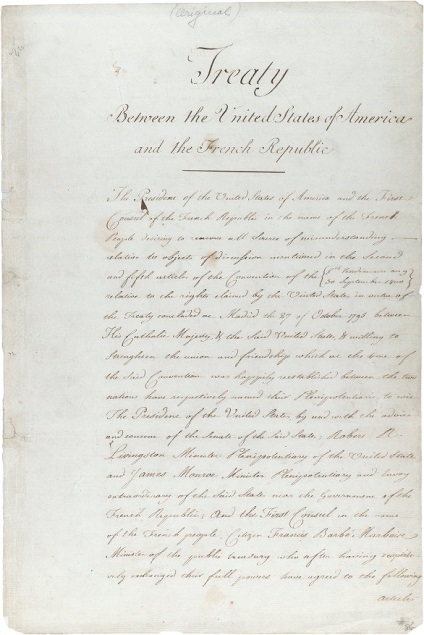 (Original)
Treaty
Between the United States of America
and the French Republic
The President of the United States of America and the First
Consul of the French Republic in the name of the French
People desiring to remove all Source of misunderstanding
relative to objects of discussion mentioned in the Second
and fifth articles of the Convention of the (8th Vendemiaire an 9
30 September 1800
relative to the rights claimed by the United States in virtue of
the Treaty concluded at Madrid the 27 of October 1795 between
His Catholic Majesty, & the Said United States, & willing to
Strengthen the union and friendship which at the time of
the Said Convention was happily reestablished between the two
nations have respectively named their Plenipotentiaries to wit
The President of the United States, by and with the advice
and consent of the Senate of the Said States, Robert R.
Livingston Minister Plenipotentiary of the United States
and James Monroe Minister Plenipotentiary and Envoy
extraordinary of the Said States near the Government of the
French Republic; And the First Consul in the name
of the French people, Citizen Francis Barbé Marbois
Minister of the public treasury who after having respecti-
vely exchanged their full powers have agreed to the following
articles